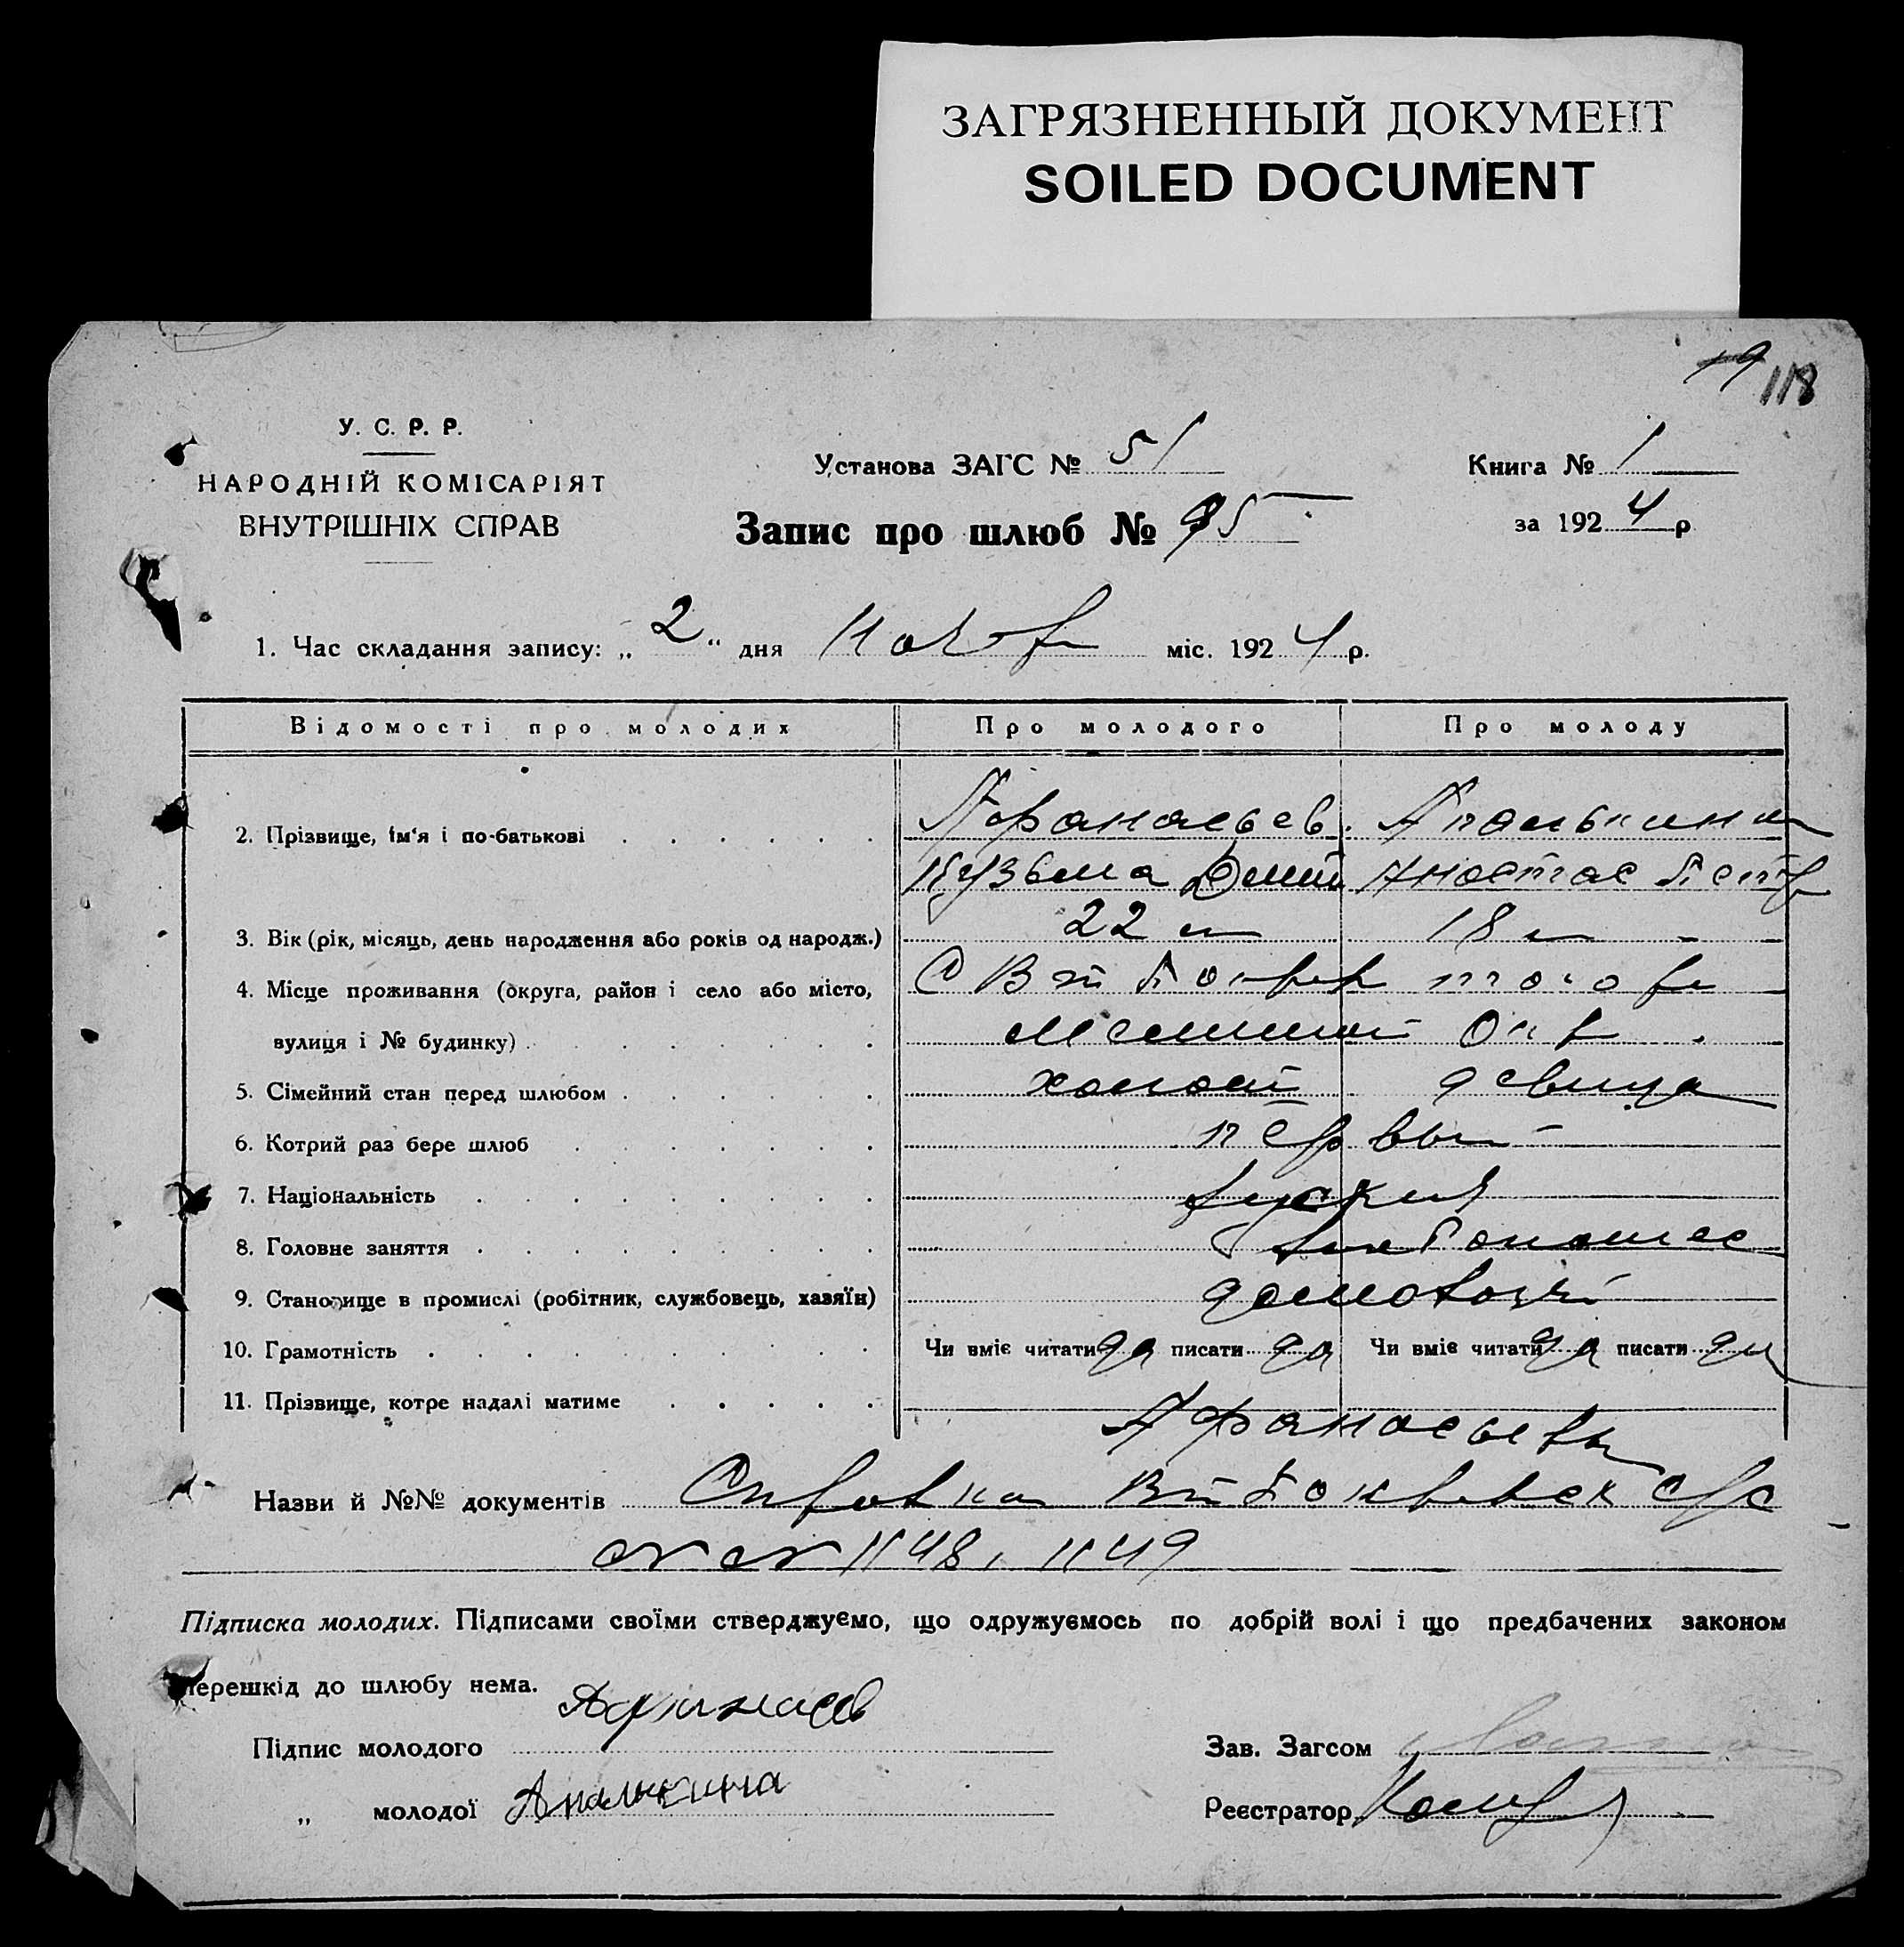 ЗАГРЯЗНЕННЫЙ ДОКУМЕНТ
SOILED DOCUMENT
118
У. С. Р. Р.
НАРОДНІЙ КОМІСАРІЯТ
ВНУТРІШНІХ СПРАВ
Установа ЗАГС № 51
Запис про шлюб № 95
Книга № 1
за 1924 р
1. Час складання запису: „2“ дня Ноября міс. 1924 р.
Відомості про молодих Про молодого Про молоду
2. Прізвище, ім‘я і по-батькові Афанасьев Апалькина
Кузьма Дмит Анастас Петр
3. Вік (рік, місяць, день народження або років од народж.) 22 л 18 л
4. Місце проживання (округа, район і село або місто, С
вулиця і № будинку) Окр
5. Сімейний стан перед шлюбом холост девица
6. Котрий раз бере шлюб первый
7. Національність русския
8. Головне заняття хлебопашес
9. Становище в промислі (робітник, службовець, хазяїн) домохоз
10. Грамотність Чи вміє читати да писати да Чи вміє читати да писати да
11. Прізвище, котре надалі матиме Афанасьевы
Назви й №№ документів Справка
1148, 1149
Підписка молодих. Підписами своїми стверджуємо, що одружуємось по добрій волі і що предбачених законом
перешкід до шлюбу нема.
Підпис молодого Афанасев
„ молодої Апалькина
Зав. Загсом
Реєстратор